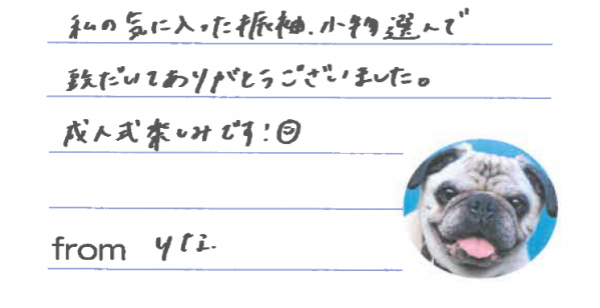 私の気に入った振袖、小物選んで
頂だいてありがとうございました。
成人式楽しみです!☺
from りな